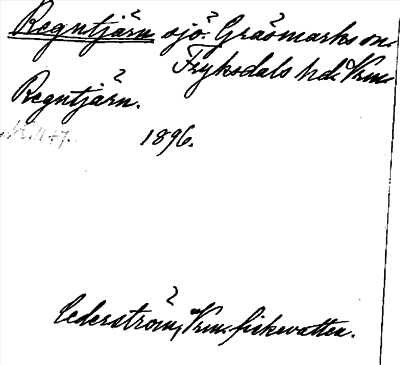 Regntjärn sjö. Gräsmarks sn.
Fryksdals hd. Vrm.
Regntjärn.
1896.
Cederström, Vrm. fiskevatten.